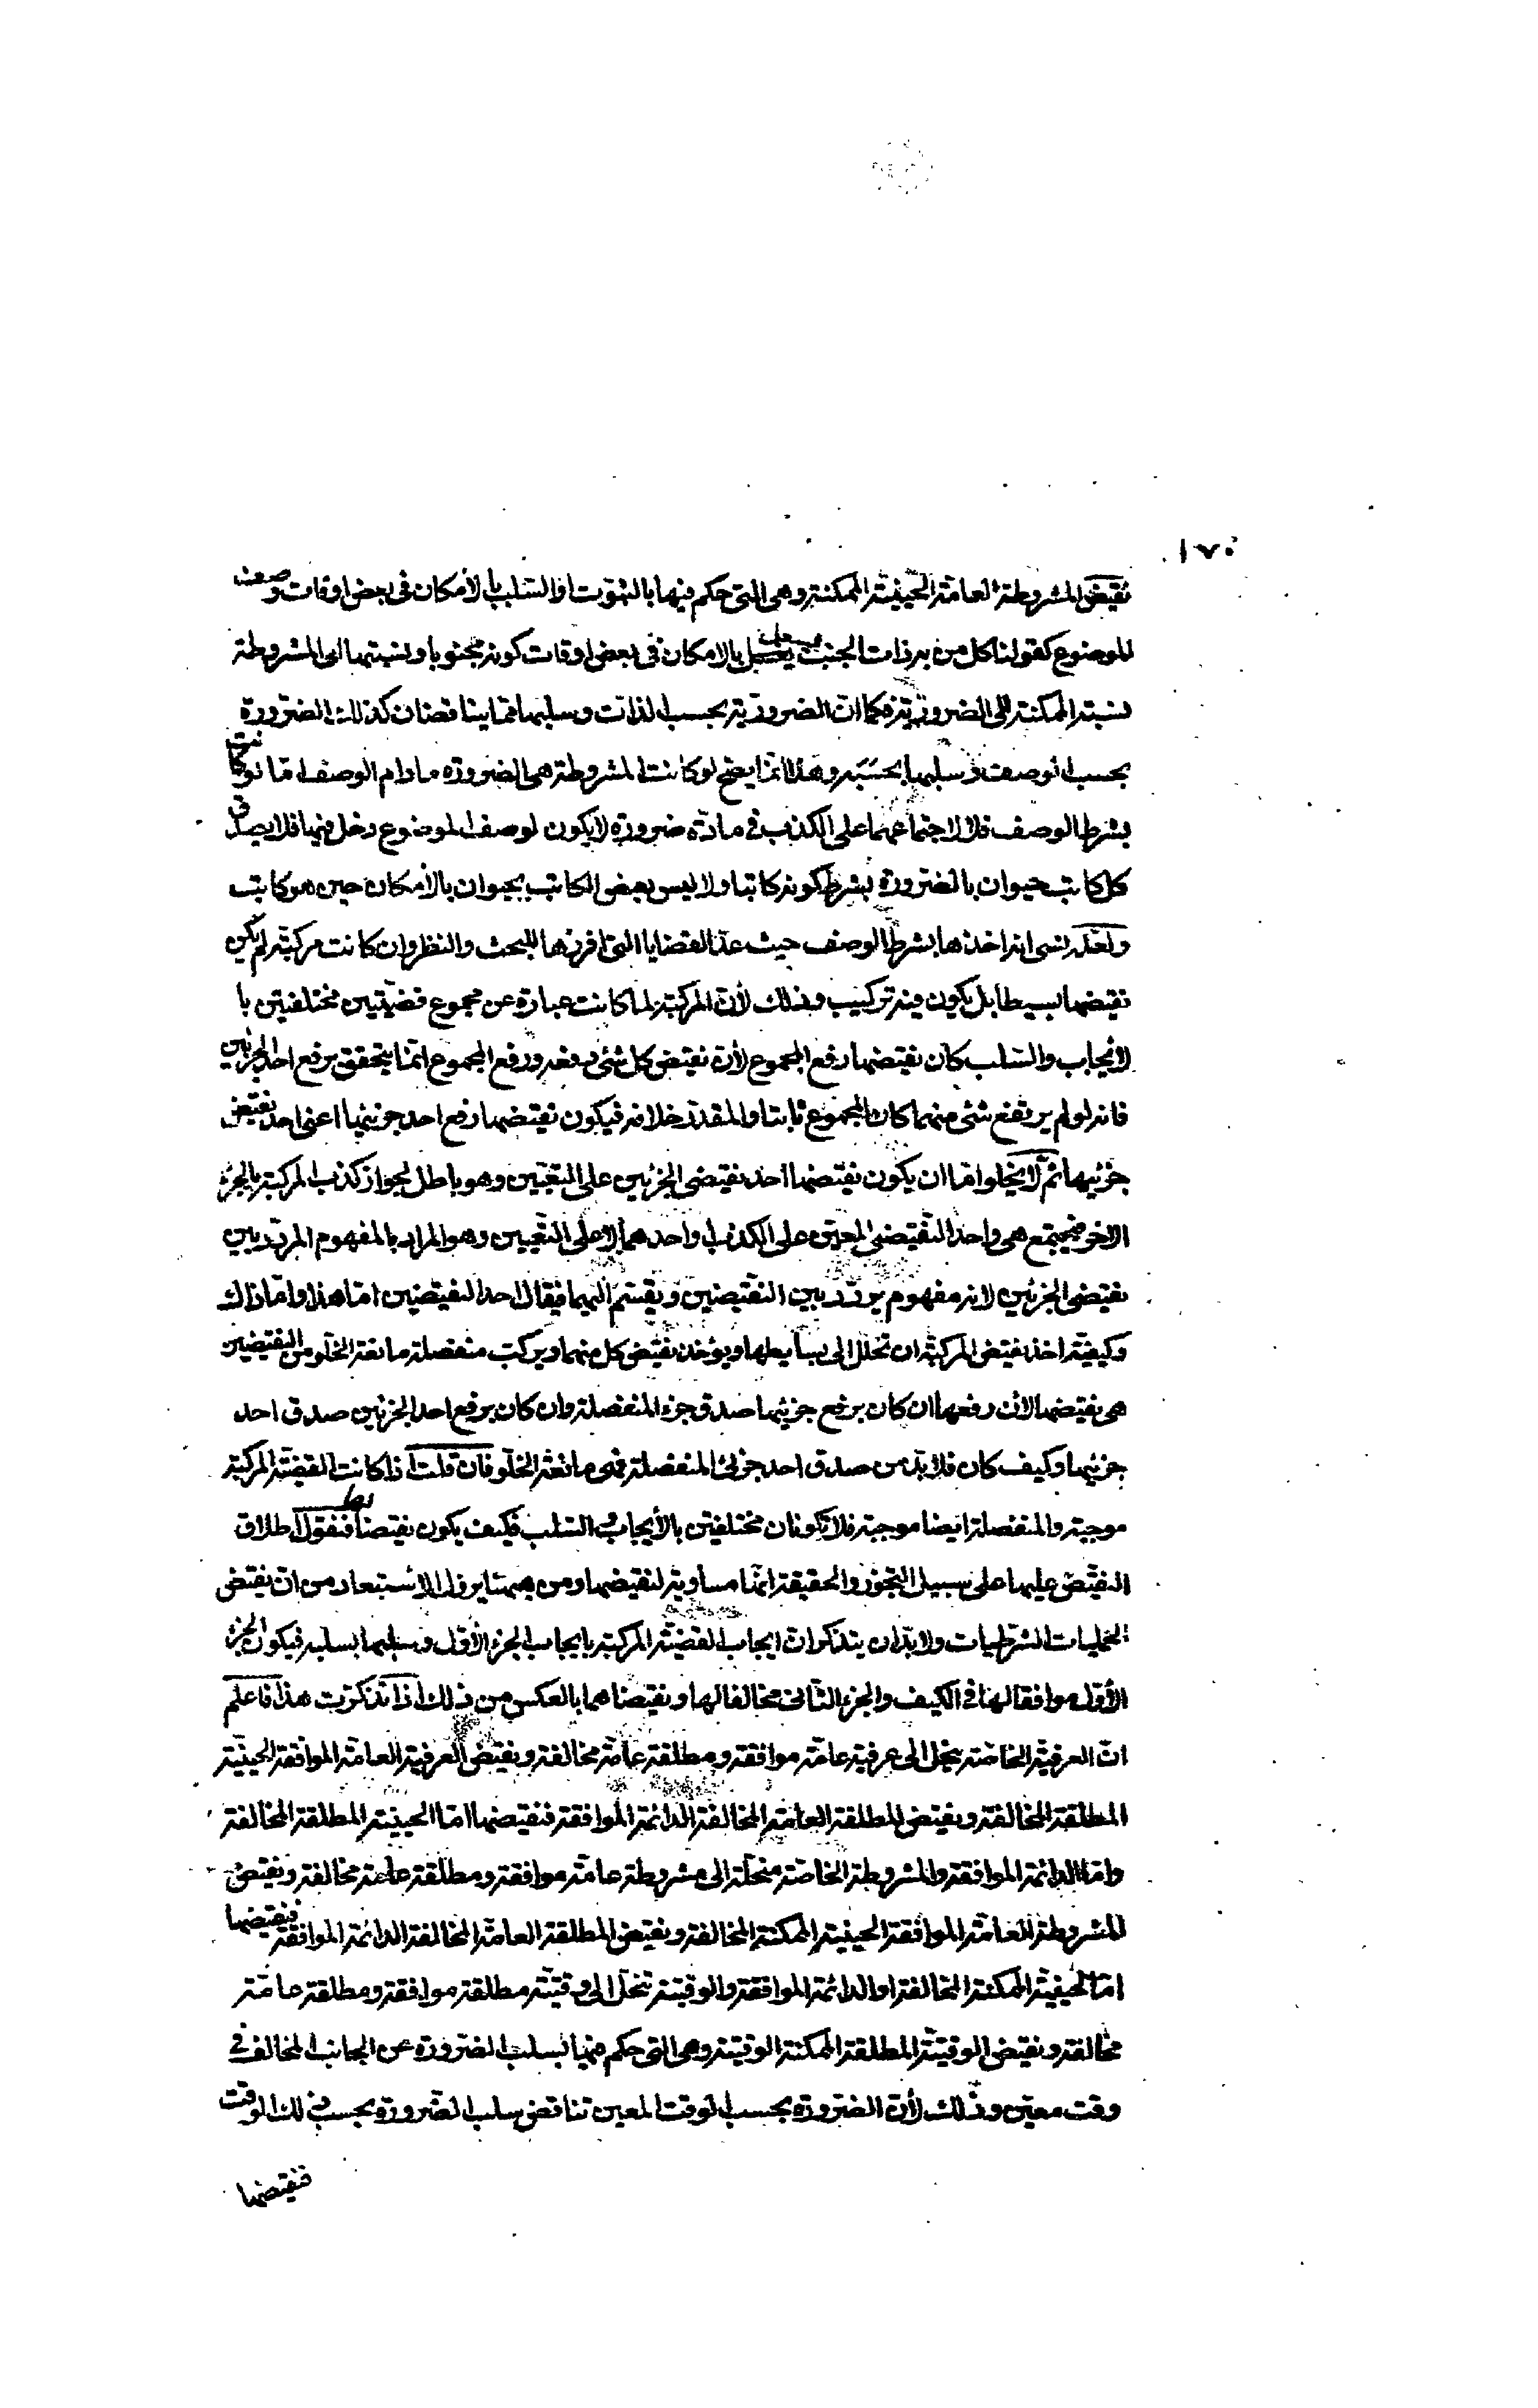 ١٧٠
نقيض المشروطة العامة الحينية الممكنة وهى التى حكم فيها بالثبوت او السلب بالأمكان فى بعض اوقات وصف
الموضوع كقولنا كل من به ذات الجنب يسعل بالامكان فى بعض اوقات كونه مجنوبا ونسبتها الى المشروطة
نسبة الممكنة الى الضرورية فكما ان الضرورية بحسب الذات وسلبها مما يتناقضان كذلك الضرورة
بحسب الوصف وسلبها بحسبه وهذا انما يصح لو كانت المشروطة هى الضرورة مادام الوصف اما لو كانت
بشرط الوصف فلا لاجتماعهما على الكذب فى مادة ضرورة لا يكون لوصف الموضوع دخل فيها فلا يصدق
كل كاتب حيوان بالضرورة بشرط كونه كاتبا ولا ليس بعض الكاتب بحيوان بالأمكان حين هو كاتب
ولعله نسى انه اخذها بشرط الوصف حيث عد القضايا التى افرزها للبحث والنظر وان كانت مركبة لم يكن
نقيضها بسيطا بل يكون فيه تركيب وذلك لأن المركبة لما كانت عبارة عن مجموع قضيتين مختلفتين با
لايجاب والسلب كان نقيضها رفع المجموع لأن نقيض كل شئ رفعه ورفع المجموع انما يتحقق برفع احد الجزئين
فانه لو لم يرتفع شئ منهما كان المجموع ثابتا والمقدر خلافه فيكون نقيضها رفع احد جزئيها اعنى احد نقيضى
جزئيها ثم لا يخلوا اما ان يكون نقيضها احد نقيضى الجزئين على التعيين وهو باطل لجواز كذب المركبة بالجزء
الاخر فيجتمع هى واحد النقيضى المعين على الكذب او احدهما لا على التعيين وهو المراد بالمفهوم المردد بين
نقيضى الجزئين لانه مفهوم يردد بين النقيضين ويقسم اليهما فيقال احد النقيضين اما هذا واما ذاك
وكيفية اخذ نقيض المركبة ان تحلل الى بسايطها ويؤخذ نقيض كل منهما ويركب منفصلة مانعة الخلو من النقيضين
هى نقيضها لأن رفعها ان كان برفع جزئيها صدق جزء المنفصلة وان كان برفع احد الجزئين صدق احد
جزئيها وكيف كان فلا بد من صدق احد جزئى المنفصلة فهى مانعة الخلو فان قلت اذا كانت القضية المركبة
موجبة والمنفصلة ايضا موجبة فلا تكونان مختلفتين بالأيجاب والسلب فكيف يكون نقيضا لها فنقول اطلاق
النقيض عليها على سبيل التجوز والحقيقة انها مساوية لنقيضها ومن ههنا يزول الاستبعاد من ان نقيض
الحمليات الشرطيات ولا بد ان يتذكر ان ايجاب القضية المركبة بايجاب الجزء الأول وسلبها بسلبه فيكون الجزء
الأول موافقا لها فى الكيف والجزء الثانى مخالفا لها ونقيضاهما بالعكس من ذلك اذا تذكرت هذا فاعلم
ان العرفية الخاصة ينحل الى عرفية عامة موافقة ومطلقة عامة مخالفة ونقيض العرفية العامة الموافقة الحينية
المطلقة المخالفة ونقيض المطلقة العامة المخالفة الدائمة الموافقة فنقيضها اما الحينية المطلقة المخالفة
واما الدائمة الموافقة والمشروطة الخاصة منحلة الى مشروطة عامة موافقة ومطلقة عامة مخالفة ونقيض
المشروطة العامة الموافقة الحينية الممكنة المخالفة ونقيض المطلقة العامة المخالفة الدائمة الموافقة فنقيضها
اما الحينية الممكنة المخالفة او الدائمة الموافقة والوقتية تنحل الى وقتية مطلقة موافقة ومطلقة عامة
مخالفة ونقيض الوقتية المطلقة الممكنة الوقتية وهى التى حكم فيها بسلب الضرورة عن الجانب المخالف فى
وقت معين وذلك لأن الضرورة بحسب الوقت المعين تناقض سلب الضرورة بحسب ذلك الوقت
فنقيضها